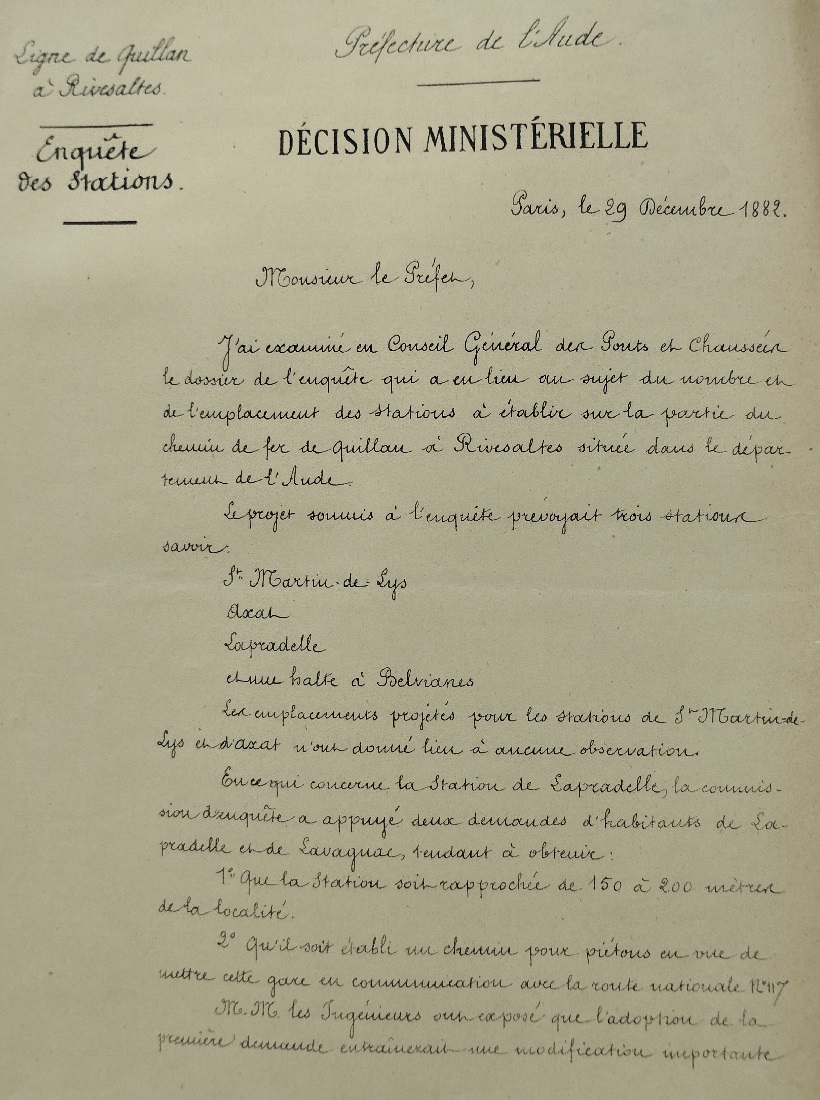 Préfecture de l'Aude.
Ligne de Quillan
à Rivesaltes.
Enquête
des Stations.
DÉCISION MINISTÉRIELLE
Paris, le 29 Décembre 1882.
Monsieur le Préfet,
J'ai examiné en Conseil Général des Ponts et Chaussées
le dossier de l'enquête qui a eu lieu au sujet du nombre et
de l'emplacement des stations à établir sur la partie du
chemin de fer de Quillan à Rivesaltes située dans le dépar-
tement de l'Aude.
Le projet soumis à l'enquête prévoyait trois stations
savoir:
St. Martin-de-Lys
Axat
Lapradelle
et une halte à Belvianes
Les emplacements projetés pour les stations de St Martin-de-
Lys et d'axat n'ont donné lieu à aucune observation.
En ce qui concerne la Station de Lapradelle, la commis-
sion d'enquête a appuyé deux demandes d'habitants de La-
pradelle et de Lavagnac, tendant à obtenir:
1° Que la Station soit rapprochée de 150 à 200 mètres
de la localité.
2° Qu'il soit établi un chemin pour piétons en vue de
mettre cette gare en communication avec la route nationale N° 117
M.M. les Ingénieurs ont exposé que l'adoption de la
première demande entraînerait une modification importante